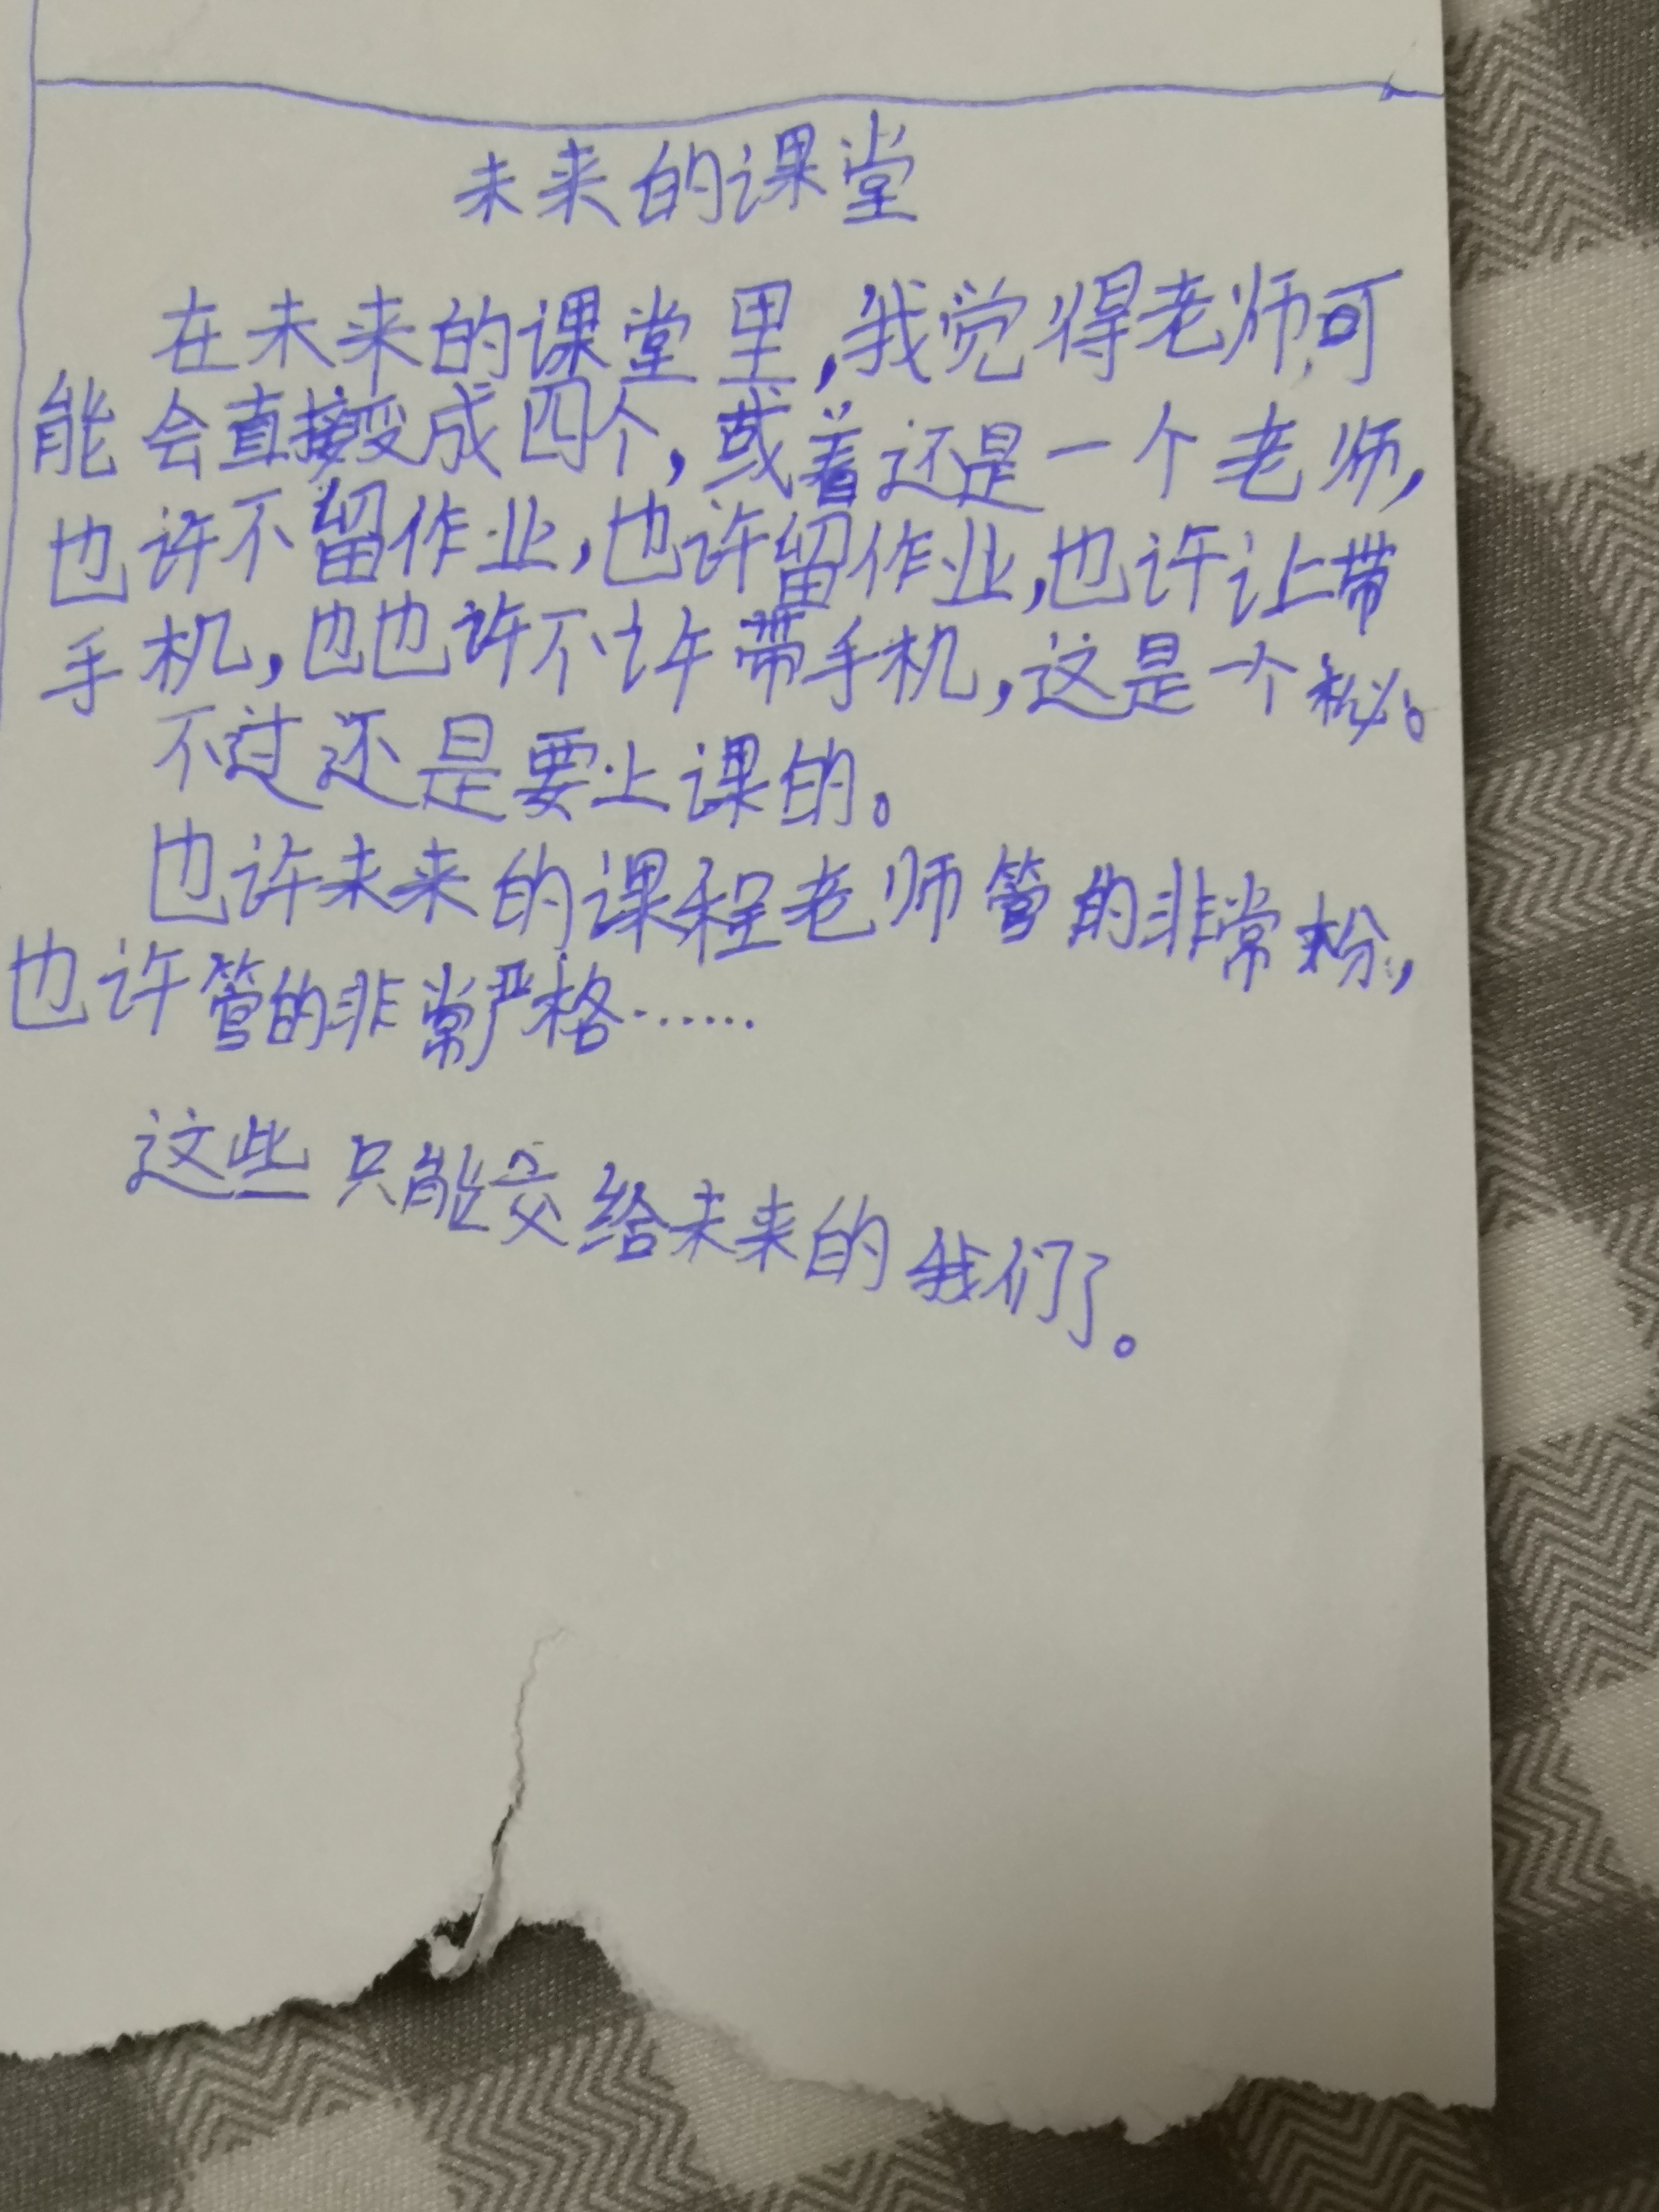 未来的课堂
在未来的课堂里,我觉得老师可
能会直接变成四个,或着还是一个老师,
也许不留作业,也许留作业,也许让带
手机,也也许不许带手机,这是一个秘。
不过还是要上课的。
也许未来的课程老师管的非常松,
也许管的非常严格……
这些只能交给未来的我们了。